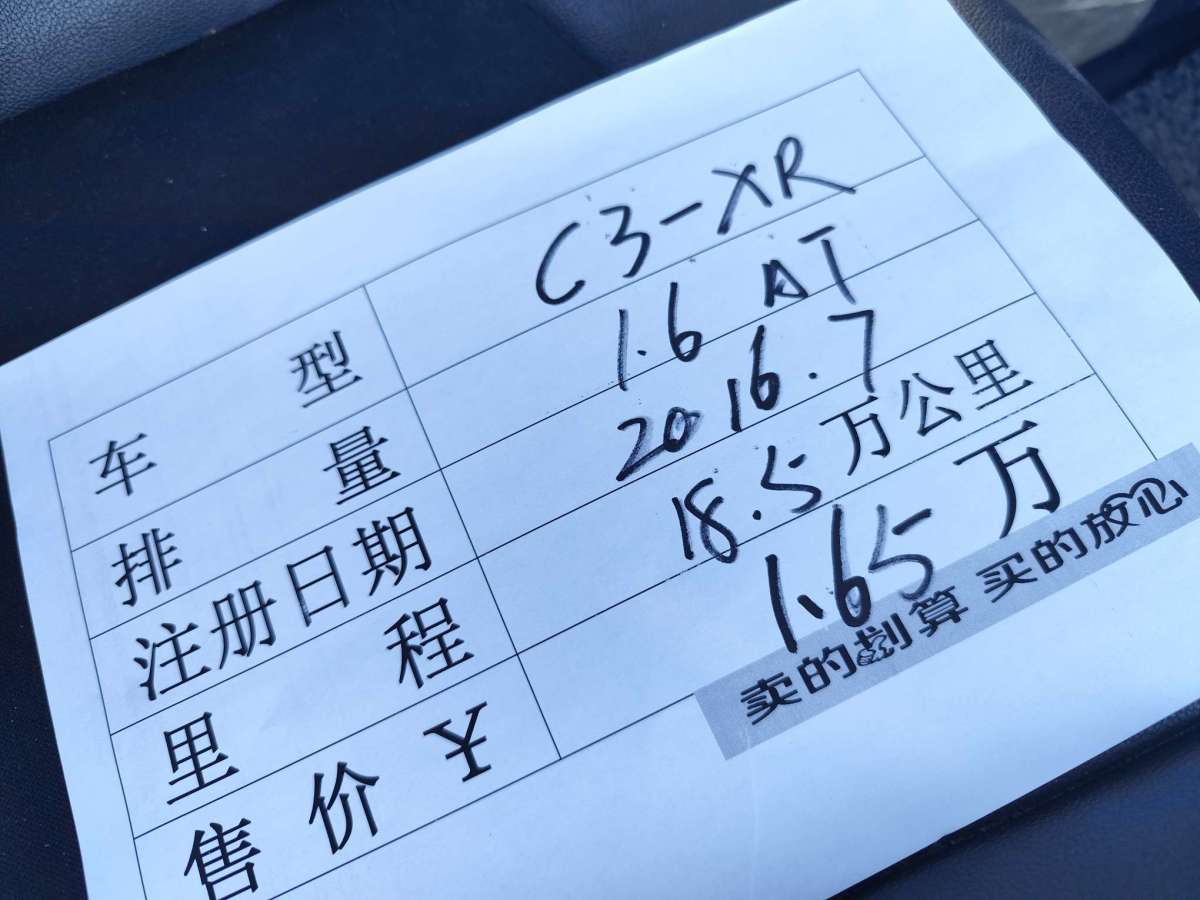 车型 C3-XR
排量 1.6 AT
注册日期 2016.7
里程 18.5万公里
售价¥ 1.65万
卖的划算 买的放心